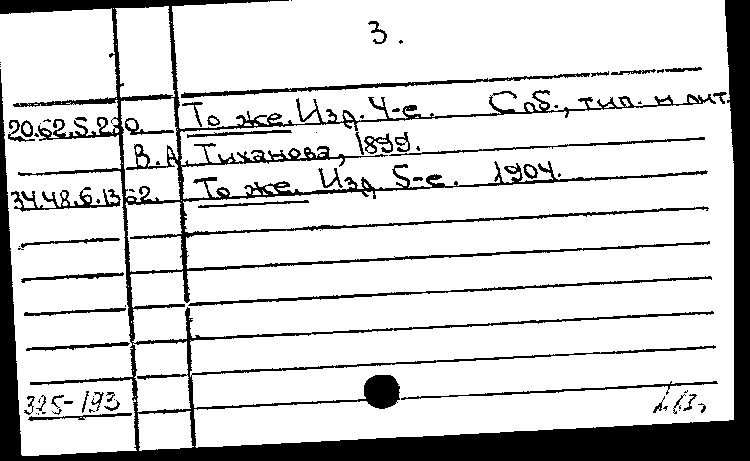 3.
20.62.5.280. То же. Изд. 4-е. Спб., тип. и лит.
В. А. Тиханова, 1899.
34.48.6.1362. То же. Изд. 5-е. 1904.
325-193